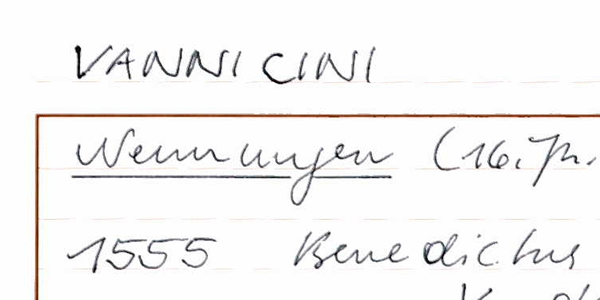 VANNICINI
Nennungen (16. Jh.
1555 Benedictus